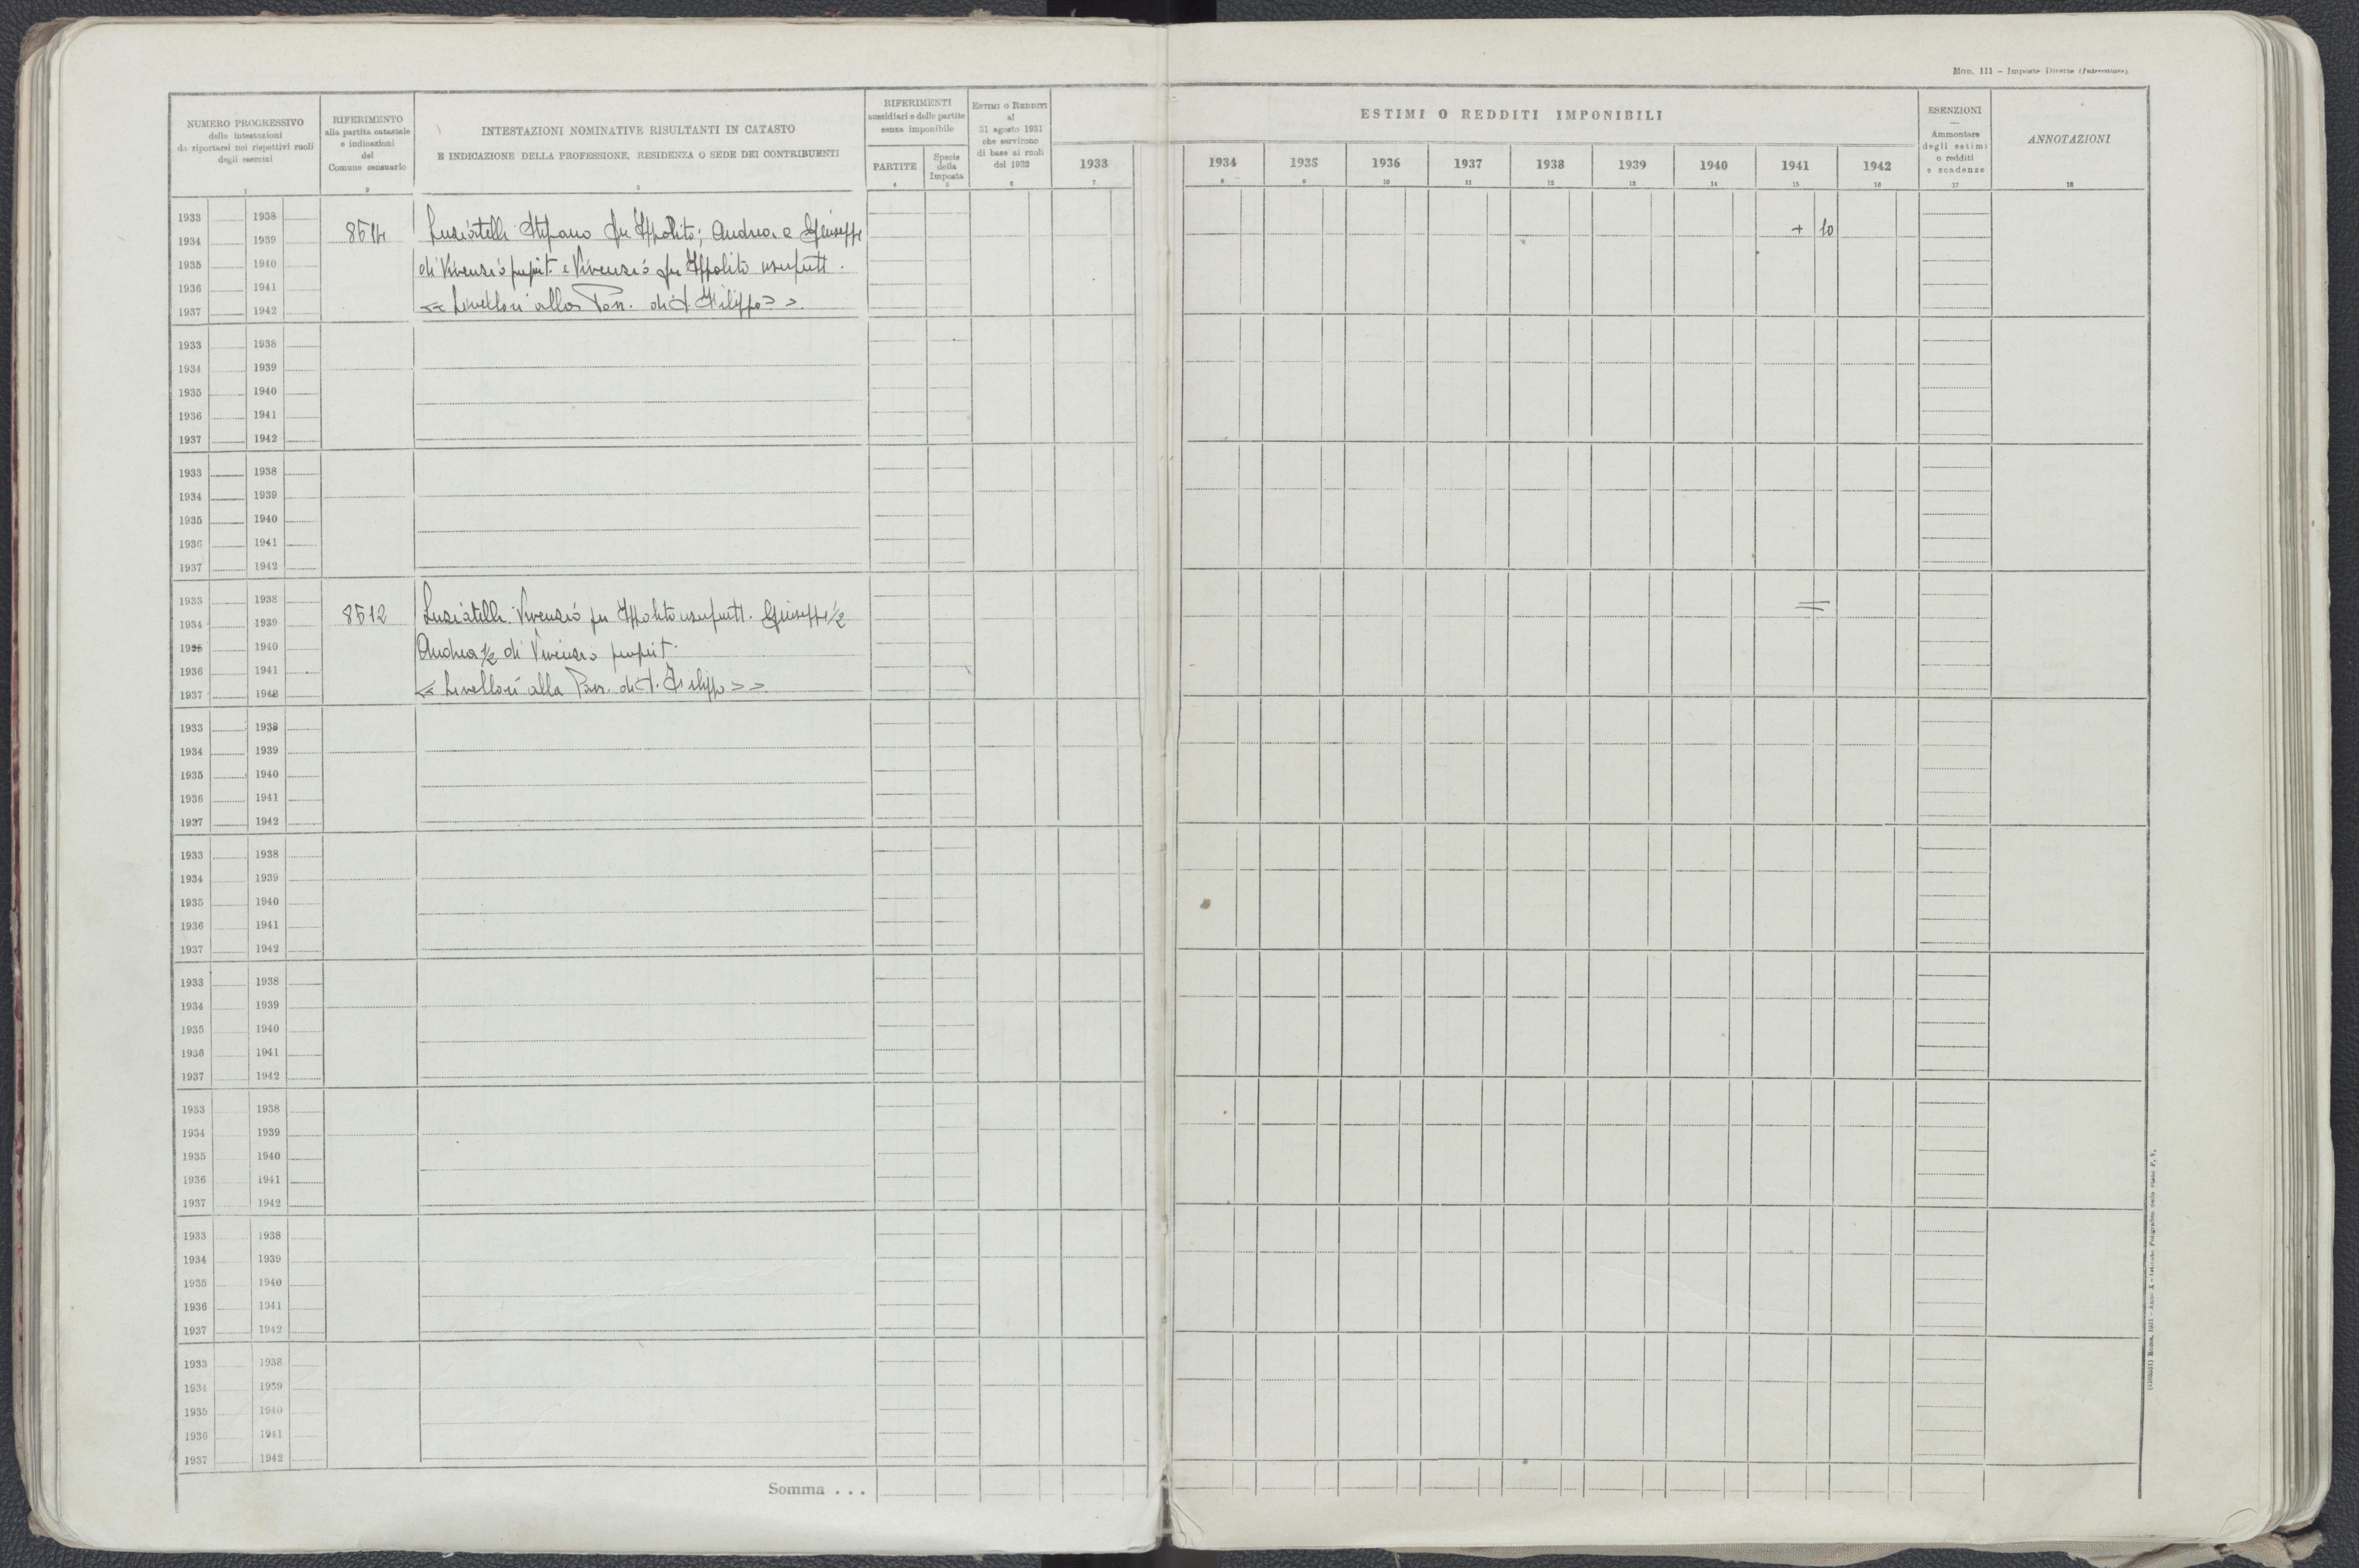 Mod. 111 – Imposte Dirette (Intercalare)
NUMERO PROGRESSIVO
delle intestazioni
da riportarsi nei rispettivi ruoli
degli esercizi
1
RIFERIMENTO
alla partita catastale
e indicazioni
del
Comune censuario
2
INTESTAZIONI NOMINATIVE RISULTANTI IN CATASTO
E INDICAZIONE DELLA PROFESSIONE, RESIDENZA O SEDE DEI CONTRIBUENTI
3
RIFERIMENTI
sussidiari e delle partite
senza imponibile
PARTITE
4
Specie
della
Imposta
5
Estimi o Redditi
al
31 agosto 1931
che servirono
di base ai ruoli
del 1932
6
ESTIMI O REDDITI IMPONIBILI
1933 1934 1935 1936 1937 1938 1939 1940 1941 1942
7 8 9 10 11 12 13 14 15 16
ESENZIONI
—
Ammontare
degli estimi
o redditi
e scadenze
17
ANNOTAZIONI
18
1933 1938
1934 1939 8514 Lusiatelli Stefano fu Ippolito; Andrea e Giuseppe + 10
1935 1940 di Vivenzio propriet. e Vivenzio fu Ippolito usufrutt.
1936 1941
1937 1942 << Livellari alla Parr. di S. Filippo >>
1933 1938
1934 1939
1935 1940
1936 1941
1937 1942
1933 1938
1934 1939
1935 1940
1936 1941
1937 1942
1933 1938
1934 1939 8512 Lusiatelli Vivenzio fu Ippolito usufrutt. Giuseppe 1/2 =
1935 1940 Andrea 1/2 di Vivenzio propriet.
1936 1941
1937 1942 << Livellari alla Parr. di S. Filippo >>
1933 1938
1934 1939
1935 1940
1936 1941
1937 1942
1933 1938
1934 1939
1935 1940
1936 1941
1937 1942
1933 1938
1934 1939
1935 1940
1936 1941
1937 1942
1933 1938
1934 1939
1935 1940
1936 1941
1937 1942
1933 1938
1934 1939
1935 1940
1936 1941
1937 1942
1933 1938
1934 1939
1935 1940
1936 1941
1937 1942
Somma . . .